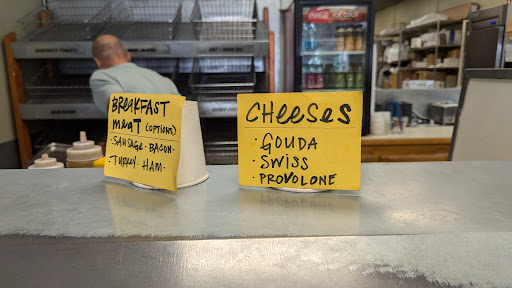 BREAKFAST
MEAT (OPTIONS)
·SAUSAGE·BACON
·TURKEY·HAM·
CHEESES
·GOUDA
·SWISS
·PROVOLONE
Coca-Cola